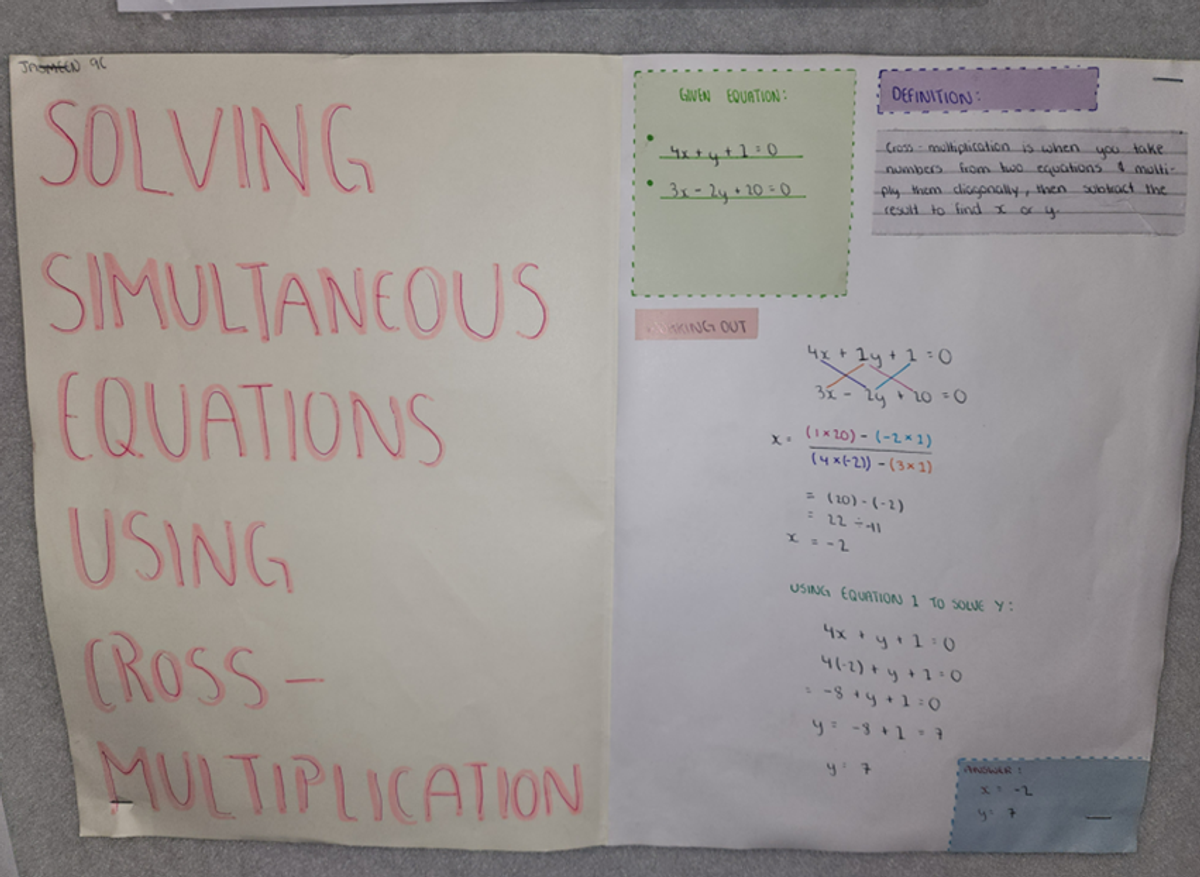 JASMEEN 9C
SOLVING
SIMULTANEOUS
EQUATIONS
USING
CROSS-
MULTIPLICATION
GIVEN EQUATION:
• 4x + y + 1 = 0
• 3x - 2y + 20 = 0
DEFINITION:
Cross-multiplication is when you take
numbers from two equations & multi-
ply them diagonally, then subtract the
result to find x or y.
WORKING OUT
4x + 1y + 1 = 0
3x - 2y + 20 = 0
x = (1×20) - (-2×1)
(4×(-2)) - (3×1)
= (20) - (-2)
= 22 ÷ -11
x = -2
USING EQUATION 1 TO SOLVE Y:
4x + y + 1 = 0
4(-2) + y + 1 = 0
= -8 + y + 1 = 0
y = -8 + 1 = 7
y = 7
ANSWER:
x = -2
y = 7